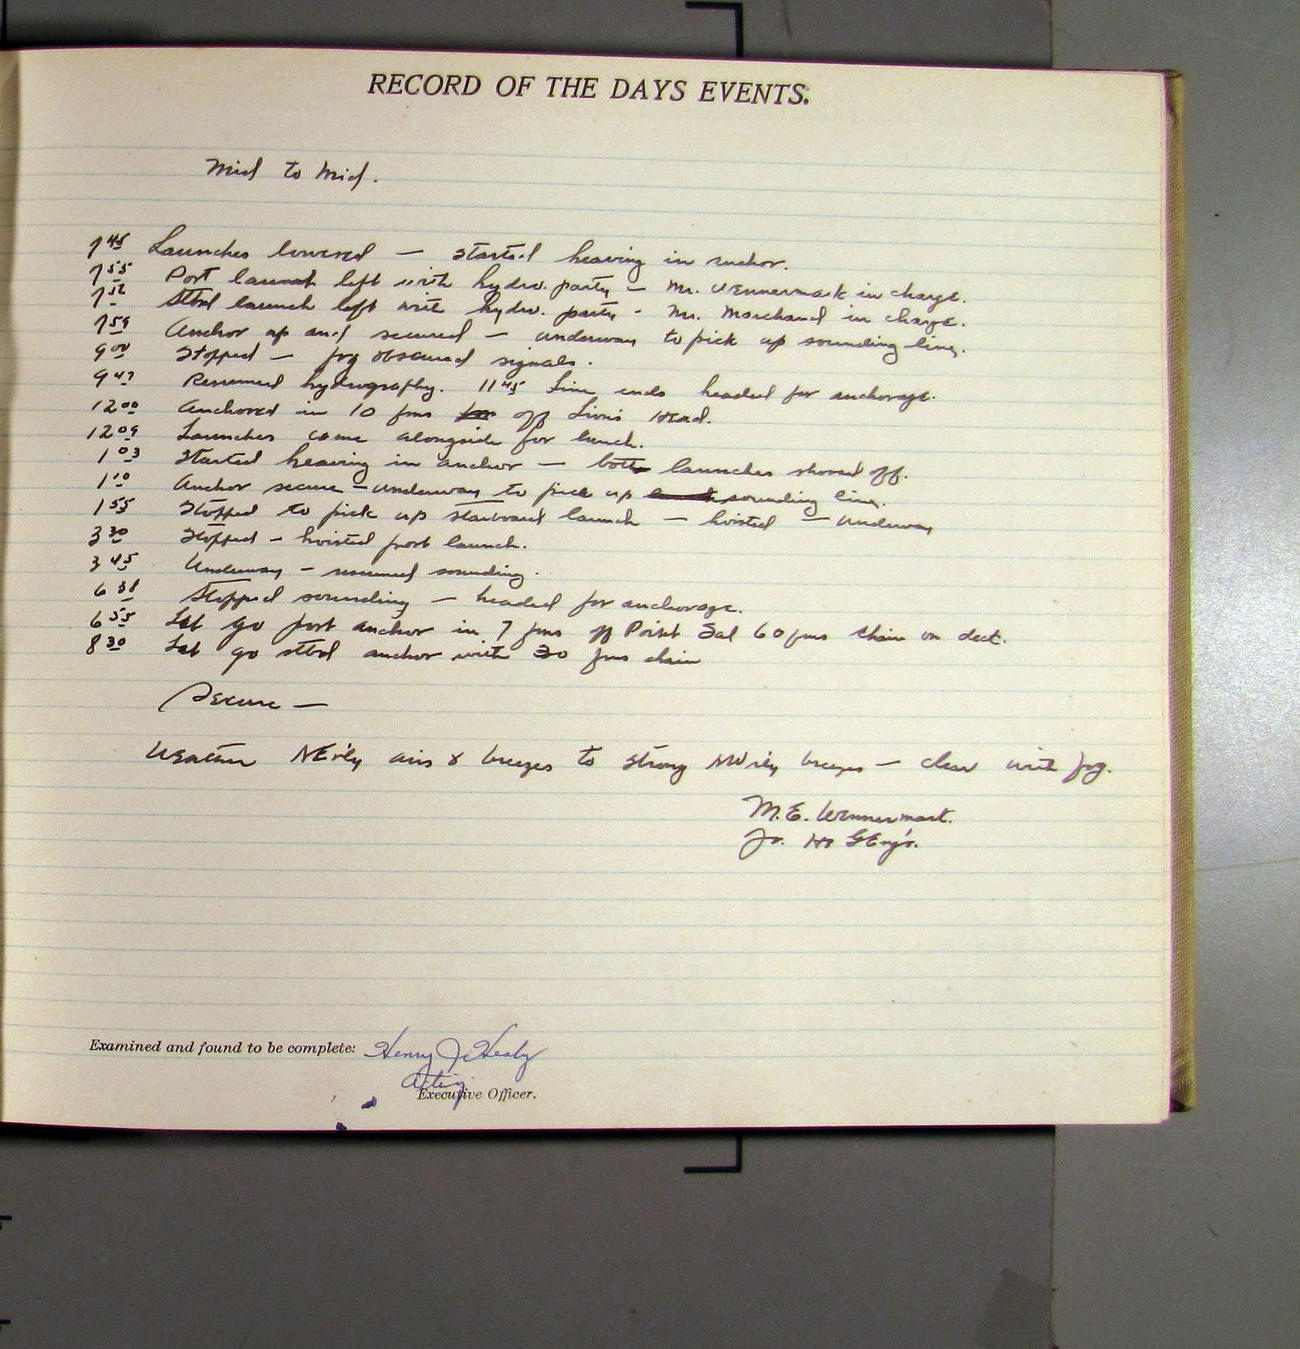 RECORD OF THE DAYS EVENTS.
Mid to Mid.
7 45 Launches lowered — started heaving in anchor.
7 55 Port launch left with hydro. party — Mr. Wennermark in charge.
7 52 Stbd launch left with hydro. party - Mr. Marchand in charge.
7 59 Anchor up and secured — underway to pick up sounding line.
9 00 Stopped — fog obscured signals.
9 47 Resumed hydrography. 11 45 Line ends headed for anchorage.
12 00 Anchored in 10 fms off Lion's Head.
12 09 Launches came alongside for lunch.
1 03 Started heaving in anchor — both launches shoved off.
1 10 Anchor secure — underway to pick up sounding line.
1 55 Stopped to pick up starboard launch — hoisted — underway
3 30 Stopped — hoisted port launch.
3 45 Underway — resumed sounding.
6 31 Stopped sounding — headed for anchorage.
6 55 Let go port anchor in 7 fms off Point Sal 60 fms chain on deck.
8 30 Let go stbd anchor with 30 fms chain
Secure —
Weather NE'rly airs & breezes to strong NW'rly breezes — clear with fog.
M. E. Wennermark.
Jr. H & G Eng'r.
Examined and found to be complete: Henry J. Healy
Acting
Executive Officer.